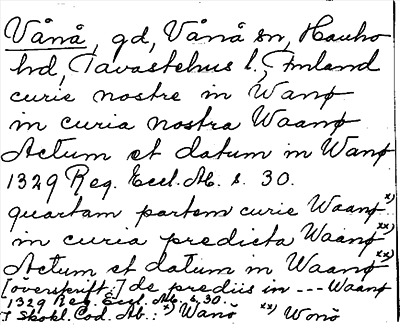 Vånå, gd, Vånå sn, Hauho
hd, Tavastehus l., Finland
curie nostre in Wanø
in curia nostra Waanø
Actum et datum in Wanø
1329 Reg. Eccl. Ab. s. 30.
quartam partem curie Waanø x)
in curia predicta Waanø xx)
Actum et datum in Waanø xx)
[överskrift:] de prediis in --- Waanø
1329 Reg. Eccl. Ab. s. 30
I Skokl. Cod. Ab.: x) Wanö xx) Wonö